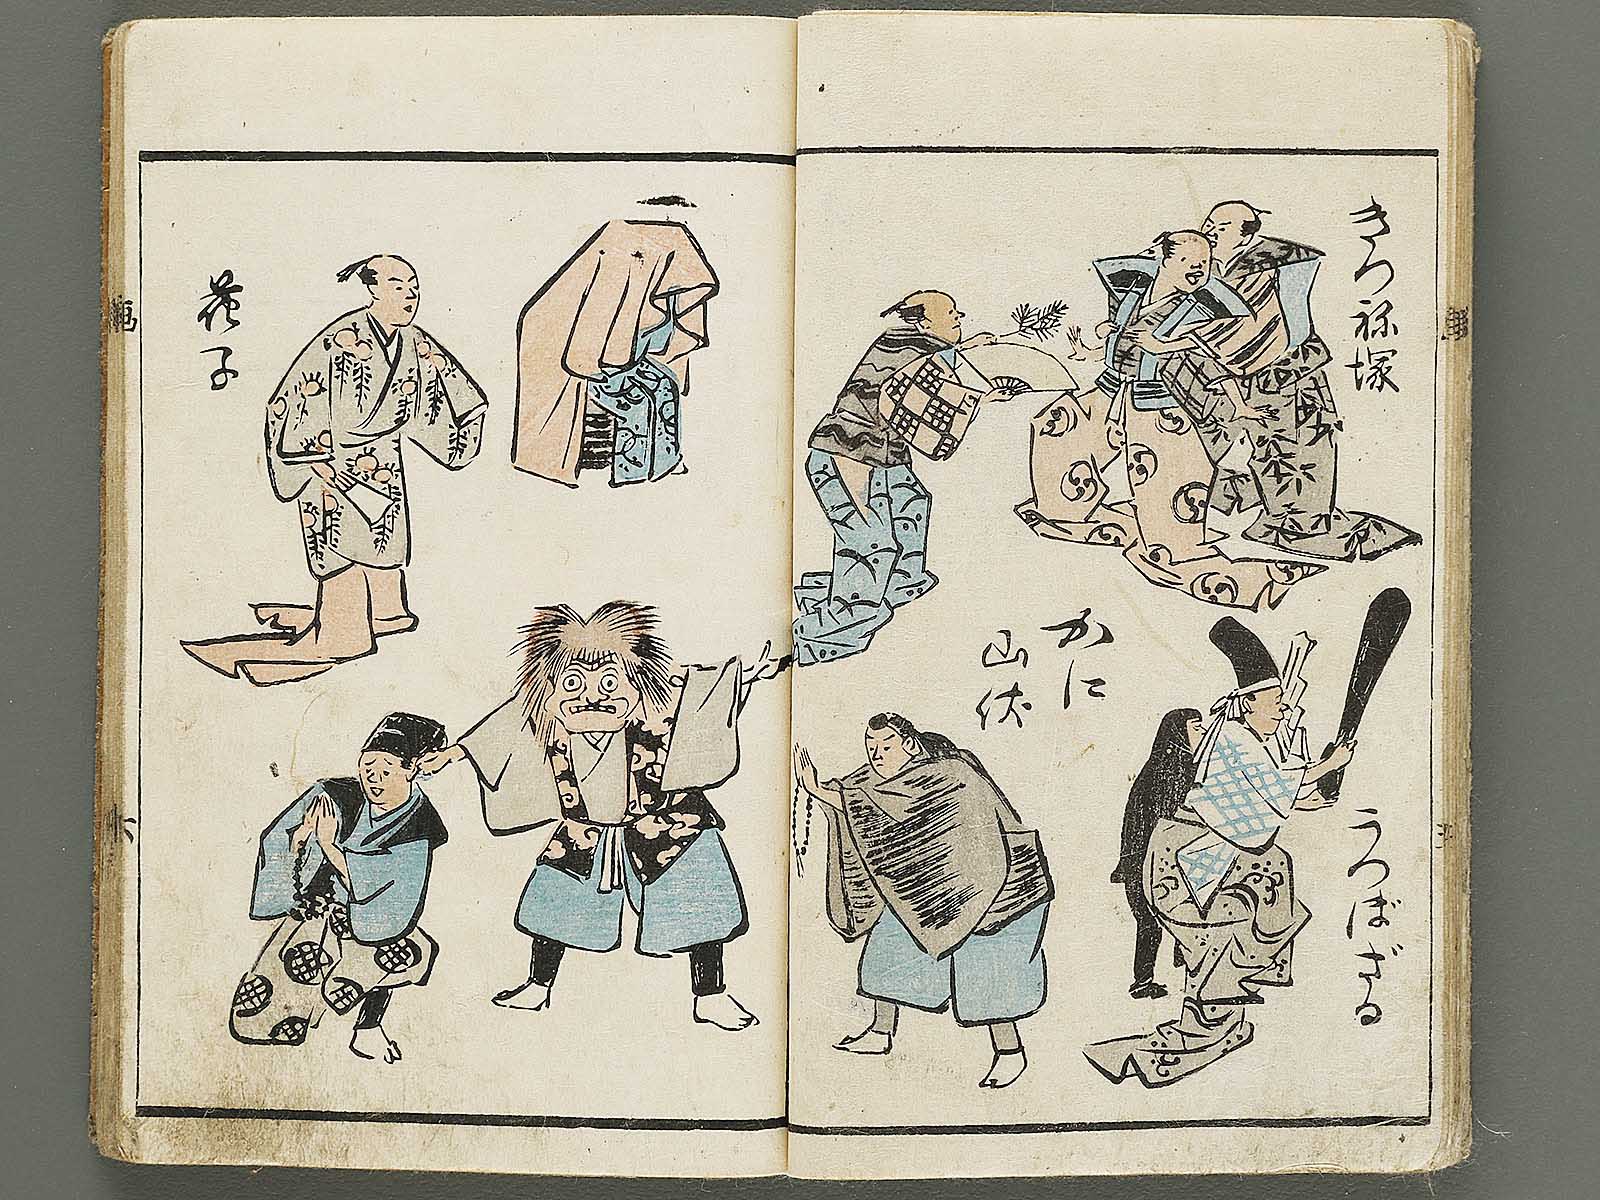 きつ祢塚
うつぼざる
かに
山伏
花子